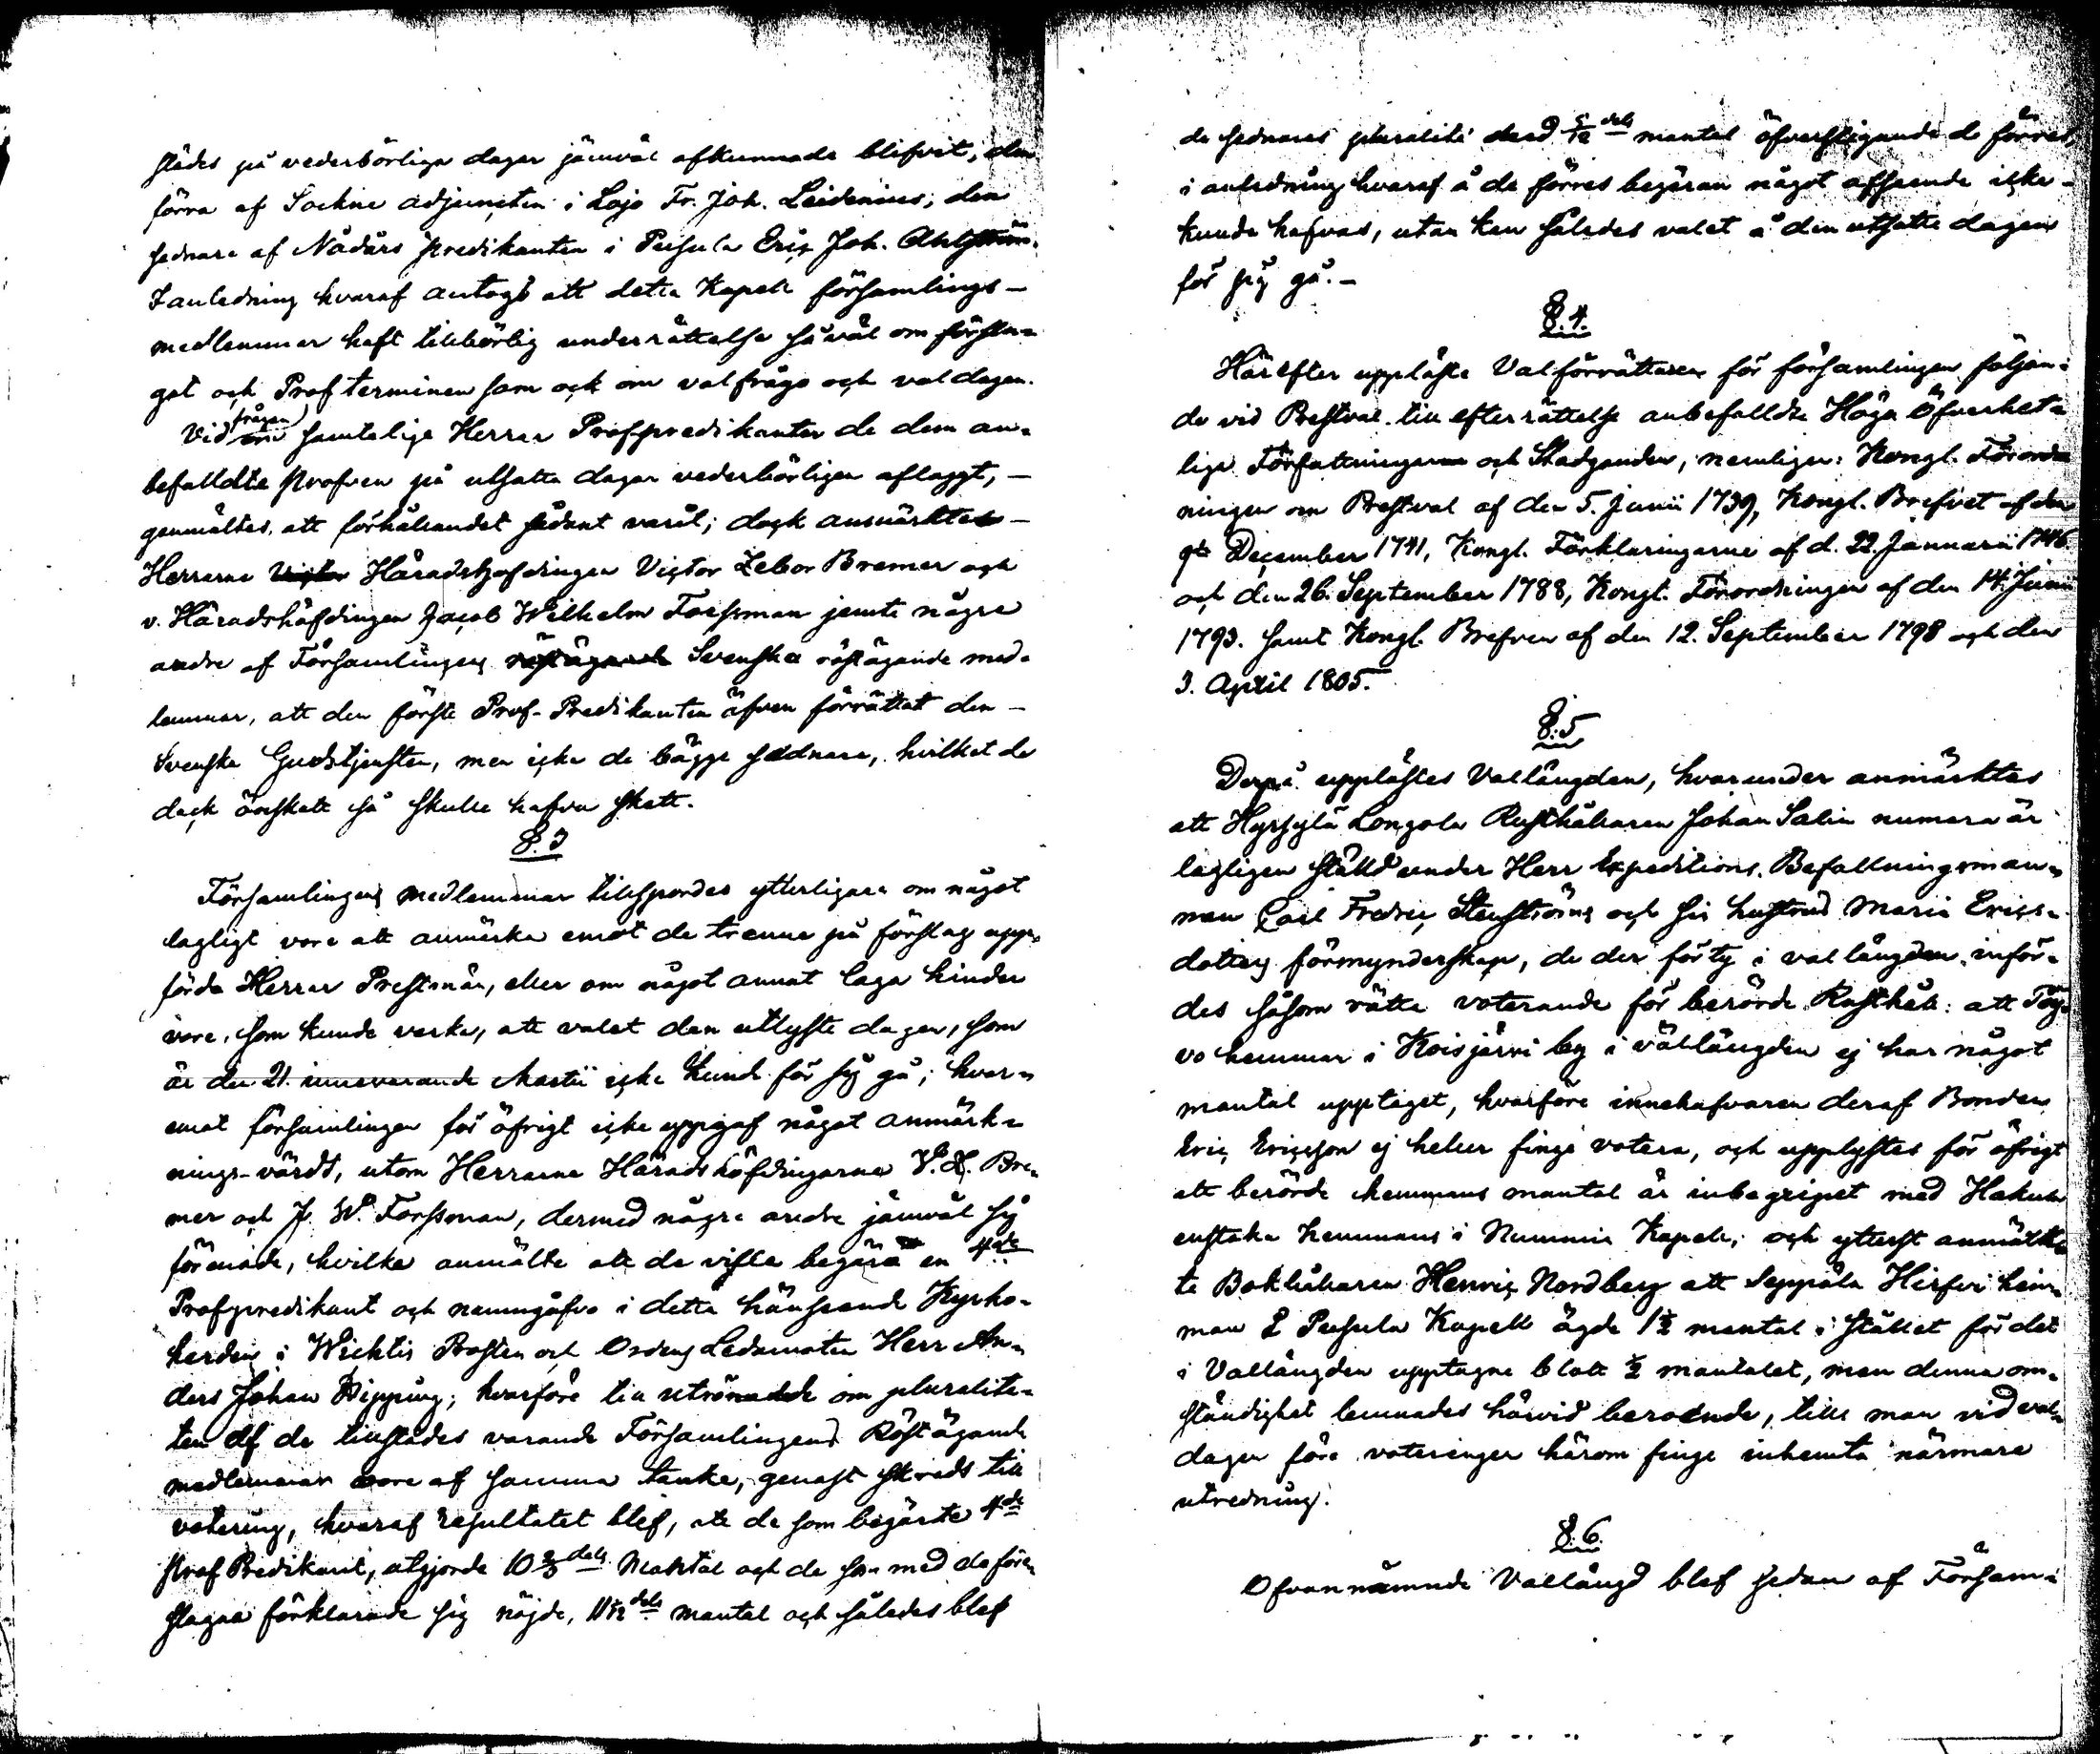 städes på vederbörliga dagar jämväl afkunnade blifvit, den
förra af Sockne adjuncten i Lojo Fr. Joh. Leidenius, den
sednare af Nådårs predikanten i Pusula Eric Joh. Ahlström.
I anledning hvaraf antogs att detta Kapell församlings-
medlemmar haft tillbörlig underrättelse så väl om försla-
get och Prof terminen som ock om valfrågo och valdagen.
Vid frågan samtelige Herrar Profpredikanter de dem an-
befalldte profven på utsatta dagar vederbörligen aflaggt, -
genmältes, att förhållandet sådant varit; dock anmärktes -
Herrarne Victor Häradshöfdingen Victor Zebor Bremer och
v. Häradshöfdingen Jacob Wilhelm Forssman jemte några
andre af Församlingens röstägande Svenska röstägande med-
lemmar, att den förste Prof-Predikanten äfven förrättat den -
Svenska Gudstjensten, men icke de bägge sednare, hvilket de
dock önskatt så skulle hafva skett.
§.3
Församlingens medlemmar tillspordes ytterligare om något
lagligt vore att anmärka emot de trenne på förslag upp-
förda Herrar Prestmän, eller om något annat laga hinder
vore, som kunde verka, att valet den utlyste dagen, som
är den 21. innevarande Martii icke kund för sig gå; hvar-
emot församlingen för öfrigt icke uppgaf något anmärk-
nings-värdt, utom Herrarne Häradshöfdingarna V. Z. Bre-
mer och J. W. Forssman, dermed några andre jämväl sig
förenade, hvilka anmälte att de ville begära en 4de
Profpredikant och namngåfvo i detta hänseende Kyrko-
herden i Wichtis Prosten och Ordens Ledamoten Herr An-
ders Johan Hipping; hvarföre till utrönande om pluralite-
ten af de tillstädes varande Församlingens Röstägande
medlemmar vore af samma tanke, genast skreds till
votering, hvaraf resultatet blef, att de som begärte 4de
Prof Predikant, utgjorde 10 2/3 dels Mantal och de som med de före-
slagna förklarade sig nöjde, 11 1/12 dels mantal och således blef
de sednares pluralité med 5/12 dels mantal öfverstigande de förres,
i anledning hvaraf å de förres begäran något afseende icke -
kunde hafvas, utan kan således valet å den utsatte dagen
för sig gå. -
§.4.
Härefter uppläste Valförrättaren för församlingen följan-
de vid Prestval till efterrättelse anbefalldte Höga Öfverhet-
liga Författningarne och Stadganden, nemligen: Kongl. Förord-
ningen om Prestval af den 5. Junii 1739, Kongl. Brefvet af den
9de December 1741, Kongl. Förklaringarne af d. 22. Januarii 1746
och den 26. September 1788, Kongl. Förordningen af den 14. Junii
1793. samt Kongl. Brefven af den 12. September 1798 och den
3. April 1805.
§.5
Derpå upplästes Vallängden, hvarunder anmärktes
att Hyrsylä Longola Rusthållaren Johan Salin numera är
lagligen ställd under Herr Expeditions-Befallningsman-
nen Carl Fredric Stenströms och sin hustrus Maria Erics-
dotters förmynderskap, de der förty i vallängden inför-
des såsom rätta voterande för berörde Rusthåll: att Töy-
vo hemman i Koisjärvi by i vallängden ej har något
mantal upptaget, hvarföre innehafvaren deraf Bonden
Eric Ericsson ej heller finge votera, och upplystes för öfrigt
att berörde hemmans mantal är inbegripet med Hakula
enstaka hemmans i Nummis Kapell, och ytterst anmälte-
te Bokhållaren Henric Nordberg att Seppälä Hirfvi hem-
man i Pusula Kapell ägde 1 1/2 mantal i stället för det
i Vallängden upptagne blott 1/2 mantalet, men denna om-
ständighet lemnades härvid beroende, till man vid val-
dagen före voteringen härom finge inhemta närmare
utredning.
§.6.
Ofvannämnde Vallängd blef sedan af Försam-